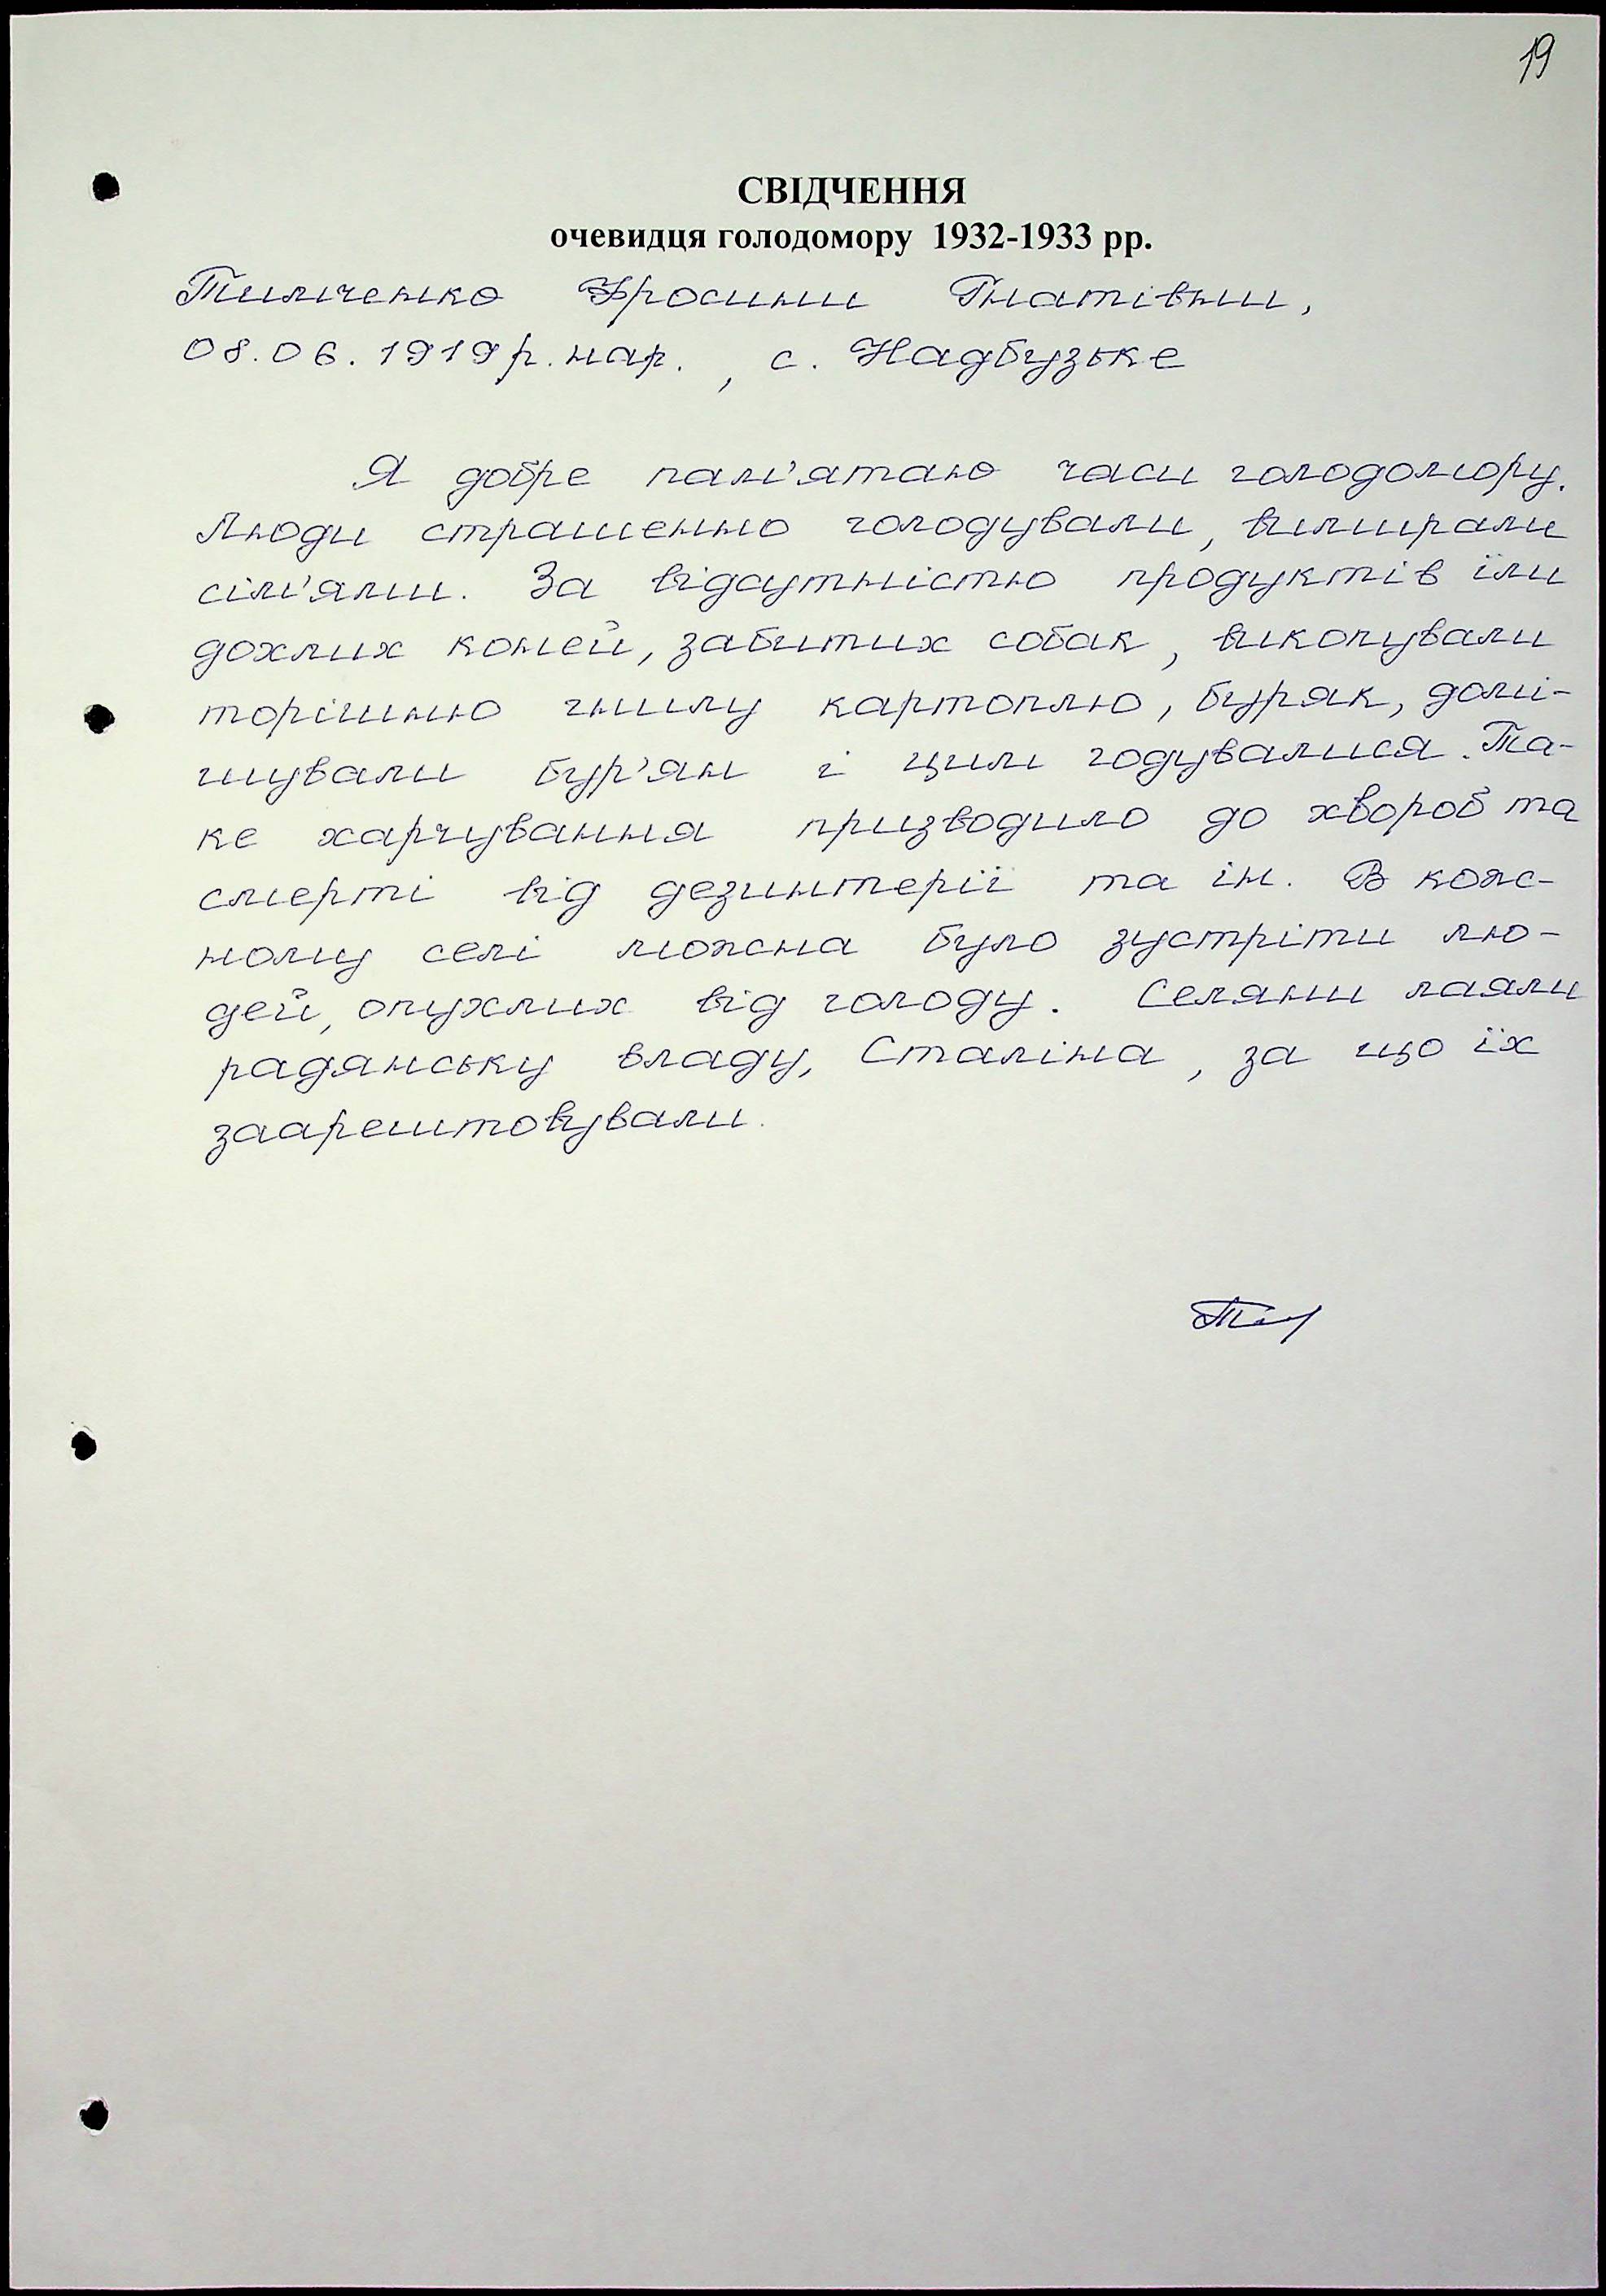 19
СВІДЧЕННЯ
очевидця голодомору 1932-1933 рр.
Тимченко Фросини Гнатівни,
08.06.1919 р. нар., с. Надбузьке
Я добре пам'ятаю часи голодомору.
Люди страшенно голодували, вимирали
сім'ями. За відсутністю продуктів їли
дохлих коней, забитих собак, викопували
торішню гнилу картоплю, буряк, домі-
шували бур'ян і цим годувалися. Та-
ке харчування призводило до хвороб та
смерті від дезинтерії та ін. В кож-
ному селі можна було зустріти лю-
дей, опухлих від голоду. Селяни лаяли
радянську владу, Сталіна, за що їх
заарештовували.